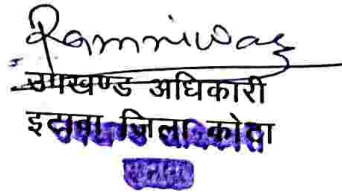 Ramniwas
उपखण्ड अधिकारी
इटावा जिला कोटा